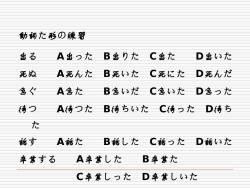 動詞た形の練習
出る A出った B出りた C出た D出いた
死ぬ A死んた B死いた C死にた D死んだ
急ぐ A急た B急いだ C急いた D急った
待つ A待つた B待ちいた C待った D待ち
た
話す A話た B話した C話った D話いた
卒業する A卒業した B卒業た
C卒業しった D卒業しいた